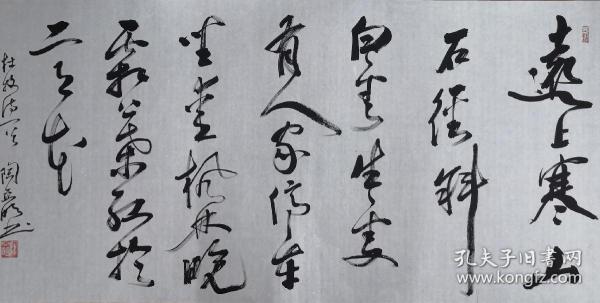 遠上寒山
石徑斜
白雲生處
有人家停車
坐愛楓林晚
霜葉紅於
二月花
杜牧诗一首 陶
孔夫子旧书网
www.kongfz.com